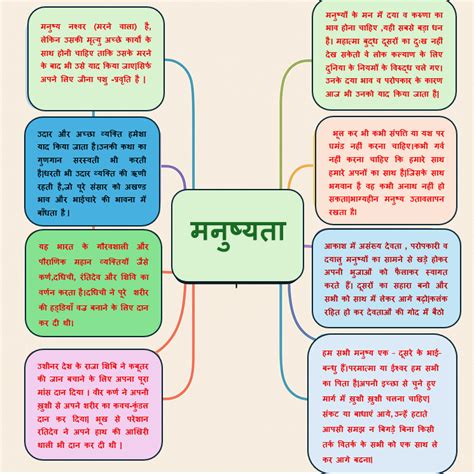 मनुष्य नश्वर (मरने वाला) है,
लेकिन उसकी मृत्यु अच्छे कार्यों के
साथ होनी चाहिए ताकि उसके मरने
के बाद भी उसे याद किया जाए|सिर्फ
अपने लिए जीना पशु -प्रवृति है |
उदार और अच्छा व्यक्ति हमेशा
याद किया जाता है|उनकी कथा का
गुणगान सरस्वती भी करती
है|धरती भी उदार व्यक्ति की ऋणी
रहती है,जो पूरे संसार को अखण्ड
भाव और भाईचारे की भावना में
बाँधता है |
यह भारत के गौरवशाली और
पौराणिक महान व्यक्तियों जैसे
कर्ण,दधिची, रंतिदेव और शिवि का
वर्णन करता है|दधिची ने पूरे शरीर
की हड्डियाँ वज्र बनाने के लिए दान
कर दी थी |
उशीनर देश के राजा शिबि ने कबूतर
की जान बचाने के लिए अपना पूरा
मांस दान दिया | वीर कर्ण ने अपनी
ख़ुशी से अपने शरीर का कवच-कुंडल
दान कर दिया| भूख से परेशान
रतिदेव ने अपने हाथ की आखिरी
थाली भी दान कर दी थी |
मनुष्यता
मनुष्यों के मन में दया व करुणा का
भाव होना चाहिए ,यही सबसे बड़ा धन
है| महात्मा बुद्ध दूसरों का दुःख नहीं
देख सकेतो वे लोक कल्याण के लिए
दुनिया के नियमों के विरुद्ध चले गए|
उनके दया भाव व परोपकार के कारण
आज भी उनको याद किया जाता है|
भूल कर भी कभी संपत्ति या यश पर
घमंड नहीं करना चाहिए|कभी गर्व
नहीं करना चाहिए कि हमारे साथ
हमारे अपनों का साथ है|जिसके साथ
भगवान है वह कभी अनाथ नहीं हो
सकता|भाग्यहीन मनुष्य उतावलापन
रखता है|
आकाश में असंख्य देवता , परोपकारी व
दयालु मनुष्यों का सामने से खड़े होकर
अपनी भुजाओं को फैलाकर स्वागत
करते हैं| दूसरों का सहारा बनो और
सभी को साथ में लेकर आगे बढ़ो|कलंक
रहित हो कर देवताओं की गोद में बैठो
हम सभी मनुष्य एक - दूसरे के भाई-
बन्धु हैं|परमात्मा या ईश्वर हम सभी
का पिता है|अपनी इच्छा से चुने हुए
मार्ग में ख़ुशी ख़ुशी चलना चाहिए|
संकट या बाधाएं आये,उन्हें हटाते
आपसी समझ न बिगड़े बिना किसी
तर्क वितर्क के सभी को एक साथ ले
कर आगे बढना|